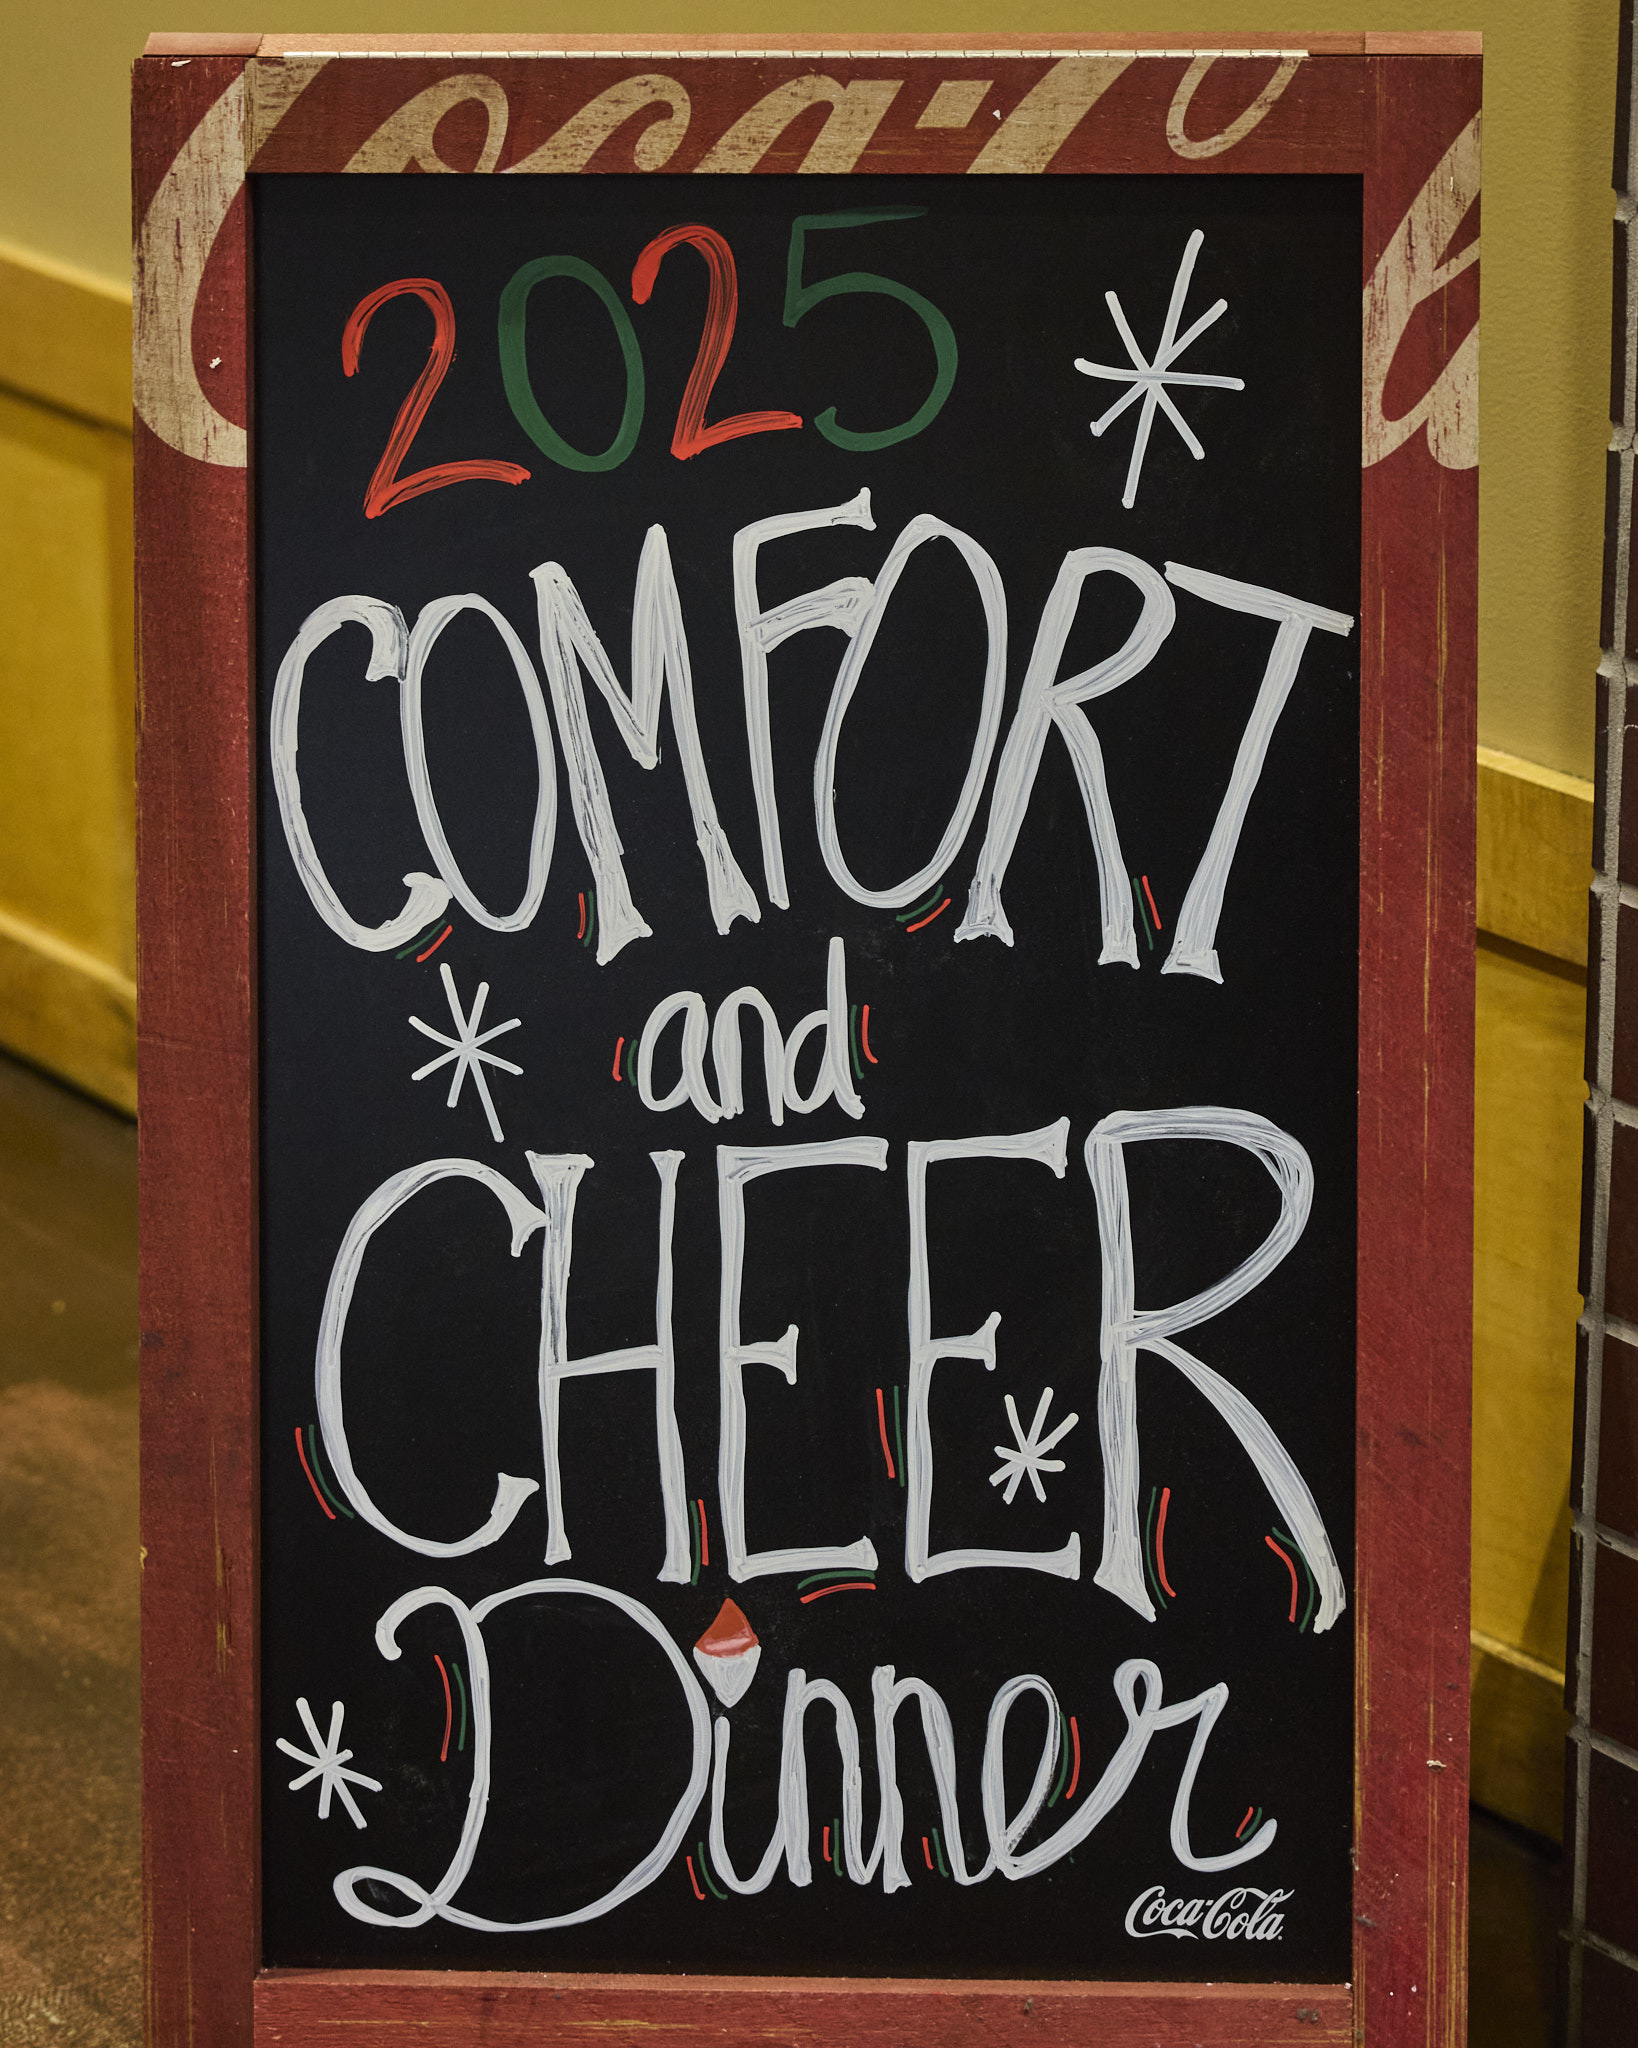 Coca-Cola
2025
COMFORT
and
CHEER
Dinner
Coca-Cola